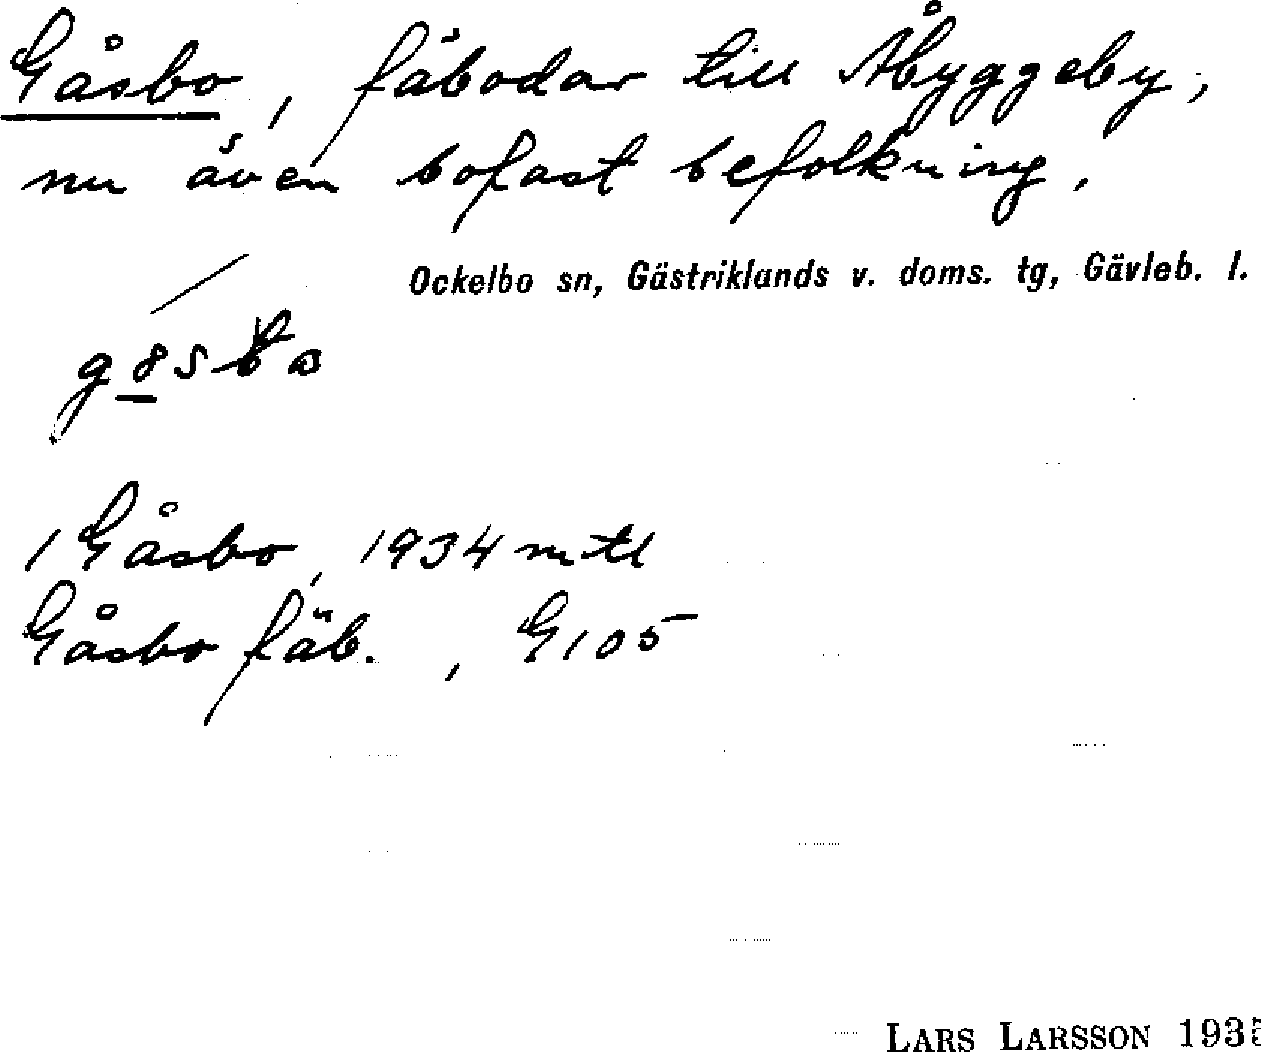 Gåsbo, fäbodar till Åbyggeby,
nu även bofast befolkning.
Ockelbo sn, Gästriklands v. doms. tg, Gävleb. l.
1 Gåsbo, 1934 mtl
Gåsbo fäb., G105
LARS LARSSON 1935